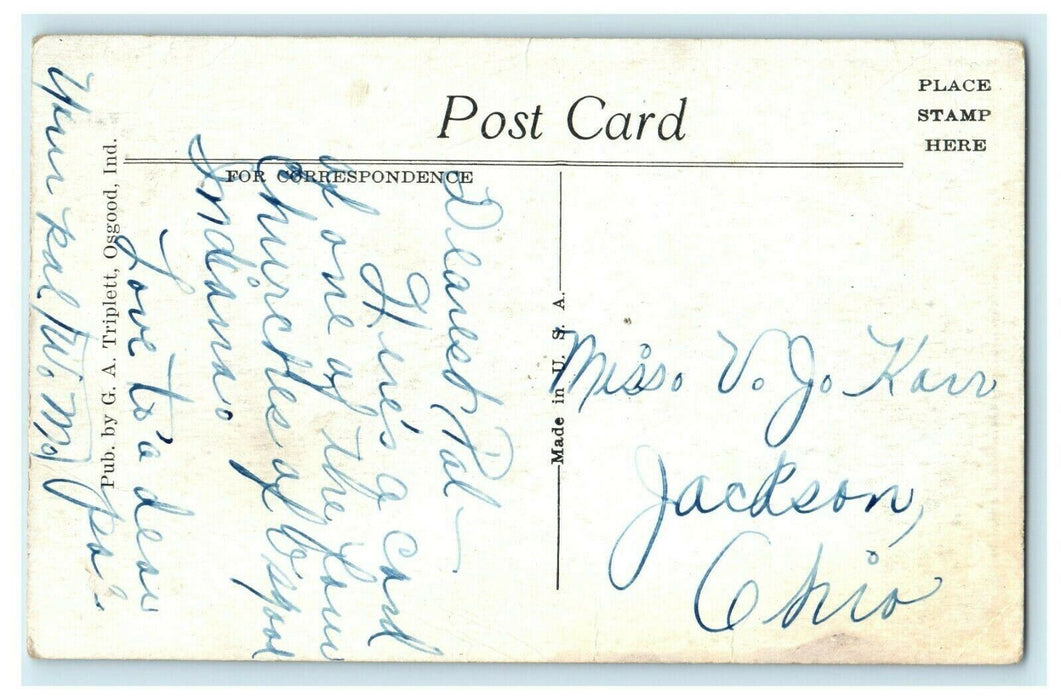 Post Card
PLACE
STAMP
HERE
FOR CORRESPONDENCE
Dearest Pal—
Here's a card
of one of the four
Churches of Osgood
Indiana.
Love to a dear
Your pal,
Pub. by G. A. Triplett, Osgood, Ind.
Made in U. S. A.
Miss. V. J. Karr
Jackson,
Ohio